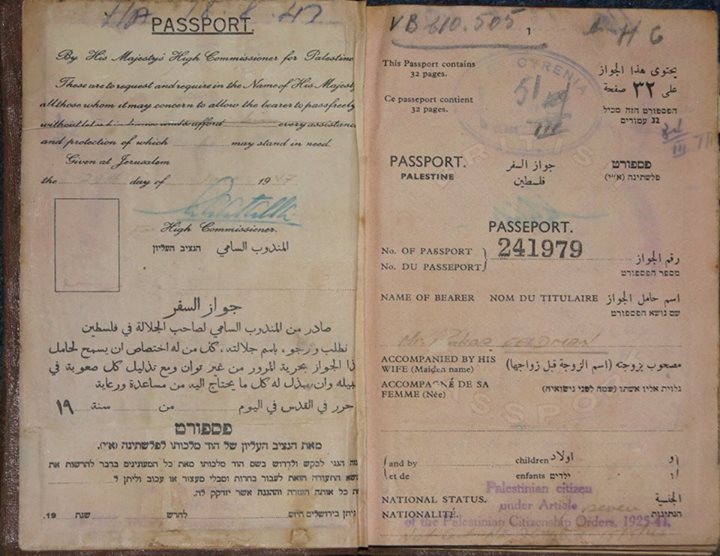 PASSPORT.
By His Majesty's High Commissioner for Palestine
These are to request and require in the Name of His Majesty
all those whom it may concern to allow the bearer to pass freely
without let or hindrance and to afford every assistance
and protection of which may stand in need.
Given at Jerusalem
the day of 1947
High Commissioner.
المندوب السامي הנציב העליון
جواز السفر
صادر من المندوب السامي لصاحب الجلالة في فلسطين
نطلب ونرجو، باسم جلالته، كل من له اختصاص ان يسمح لحامل
هذا الجواز بحرية المرور من غير توان ومع تذليل كل صعوبة في
سبيله وان يبذل له كل ما يحتاج اليه من مساعدة ورعاية
حرر في القدس في اليوم من سنة ١٩
פספורט
מאת הנציב העליון של הוד מלכותו לפלשתינה (א״י).
הנני לבקש ולדרוש בשם הוד מלכותו מאת כל המעונינים בדבר להרשות את
התעודה הזאת לעבור בחרות ומבלי מעצור או עכוב וליתן ל
כל אותה העזרה וההגנה אשר יזדקק לה.
ניתן בירושלים היום לחדש שנת 19
VB 610.505
1
H G
This Passport contains
32 pages.
يحتوى هذا الجواز
على ٣٢ صفحة
Ce passeport contient
32 pages.
הפספורט הזה מכיל
32 עמודים
CYRENIA
PASSPORT. جواز السفر פספורט
PALESTINE فلسطين פלשתינה (א״י)
PASSEPORT.
No. OF PASSPORT 241979 رقم الجواز
No. DU PASSEPORT מספר הפספורט
NAME OF BEARER NOM DU TITULAIRE اسم حامل الجواز
שם נושא הפספורט
GOLDMAN
ACCOMPANIED BY HIS
WIFE (Maiden name)
مصحوب بزوجته (اسم الزوجة قبل زواجها)
ACCOMPAGNÉ DE SA
FEMME (Née)
נלוית אליו אשתו (שמה לפני נישואיה)
and by children اولاد و
et de enfants ילדים ו
Palestinian citizen
under Article seven
of the Palestinian Citizenship Orders, 1925-41.
NATIONAL STATUS. الجنسية
NATIONALITÉ. הנתינות